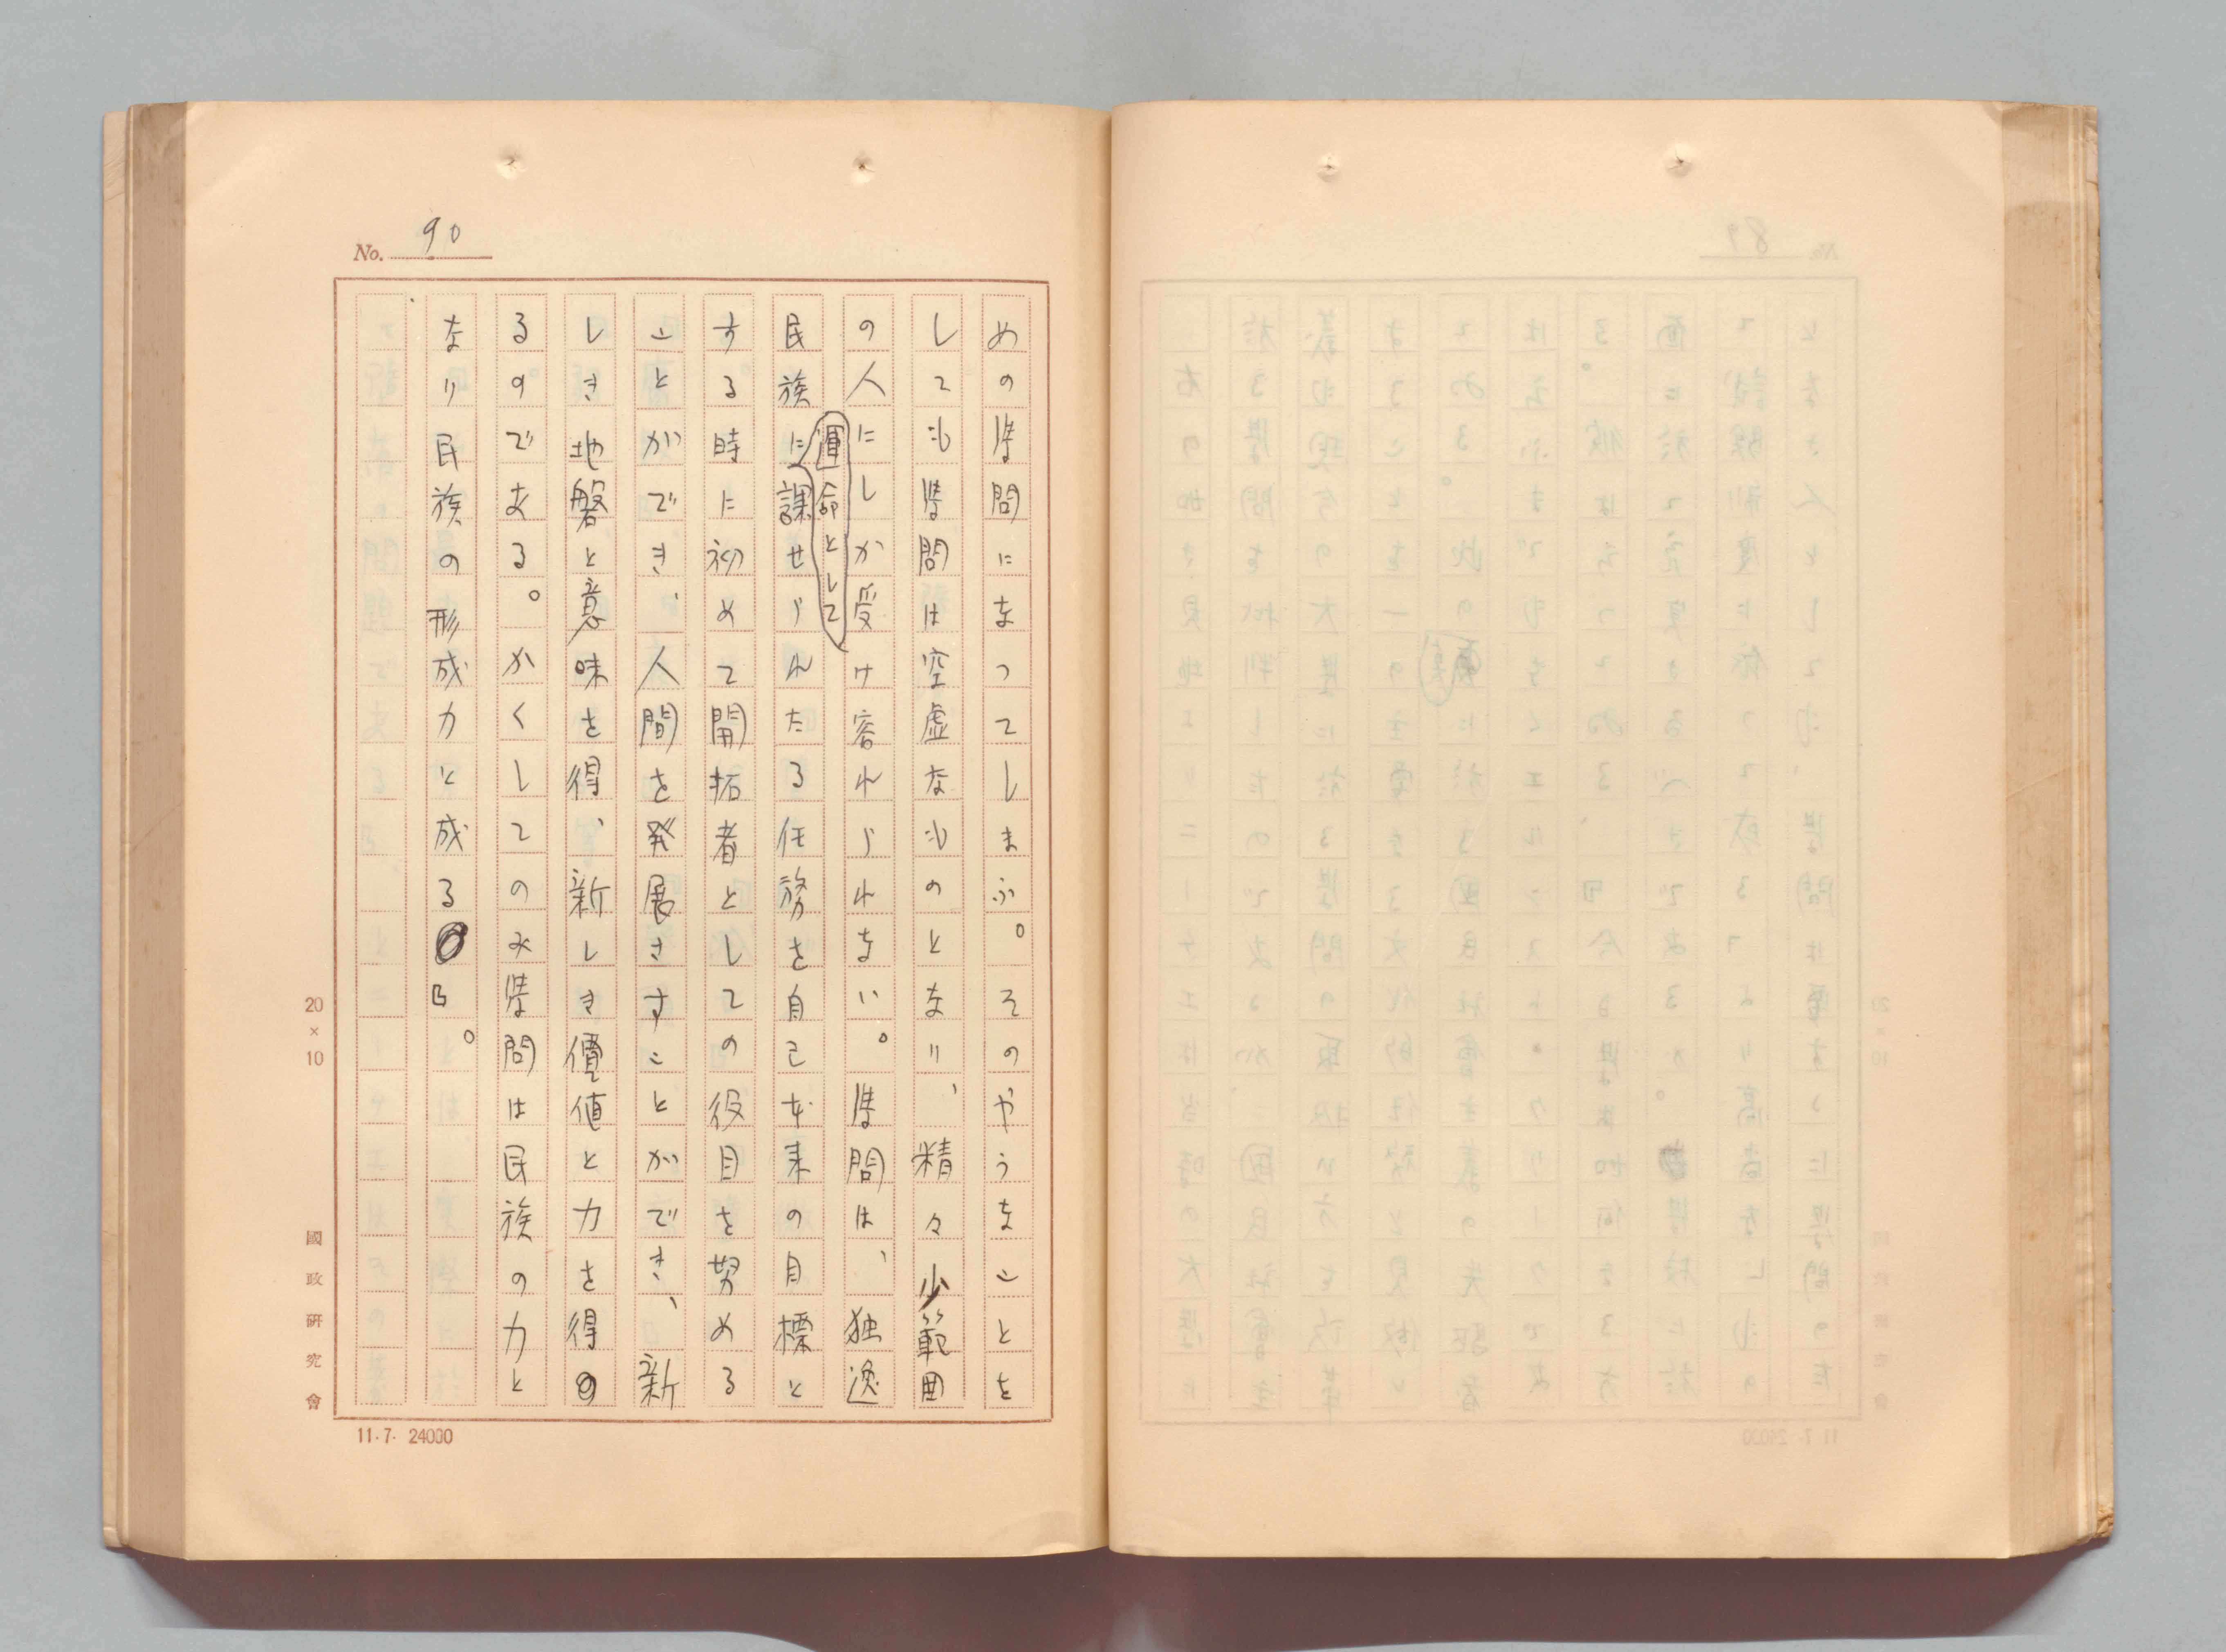 No. 90
めの学問になつてしまふ。そのやうなことを
しても学問は空虚なものとなり、精々少範囲
の人にしか受け容れられない。学問は、独逸
民族に運命として課せられたる任務を自己本来の目標と
する時に初めて開拓者としての役目を努める
ことができ、人間を発展さすことができ、新
しき地磐と意味を得、新しき價値と力を得
るのである。かくしてのみ学問は民族の力と
なり民族の形成力と成る』。
20×10
國政研究會
11.7. 24000